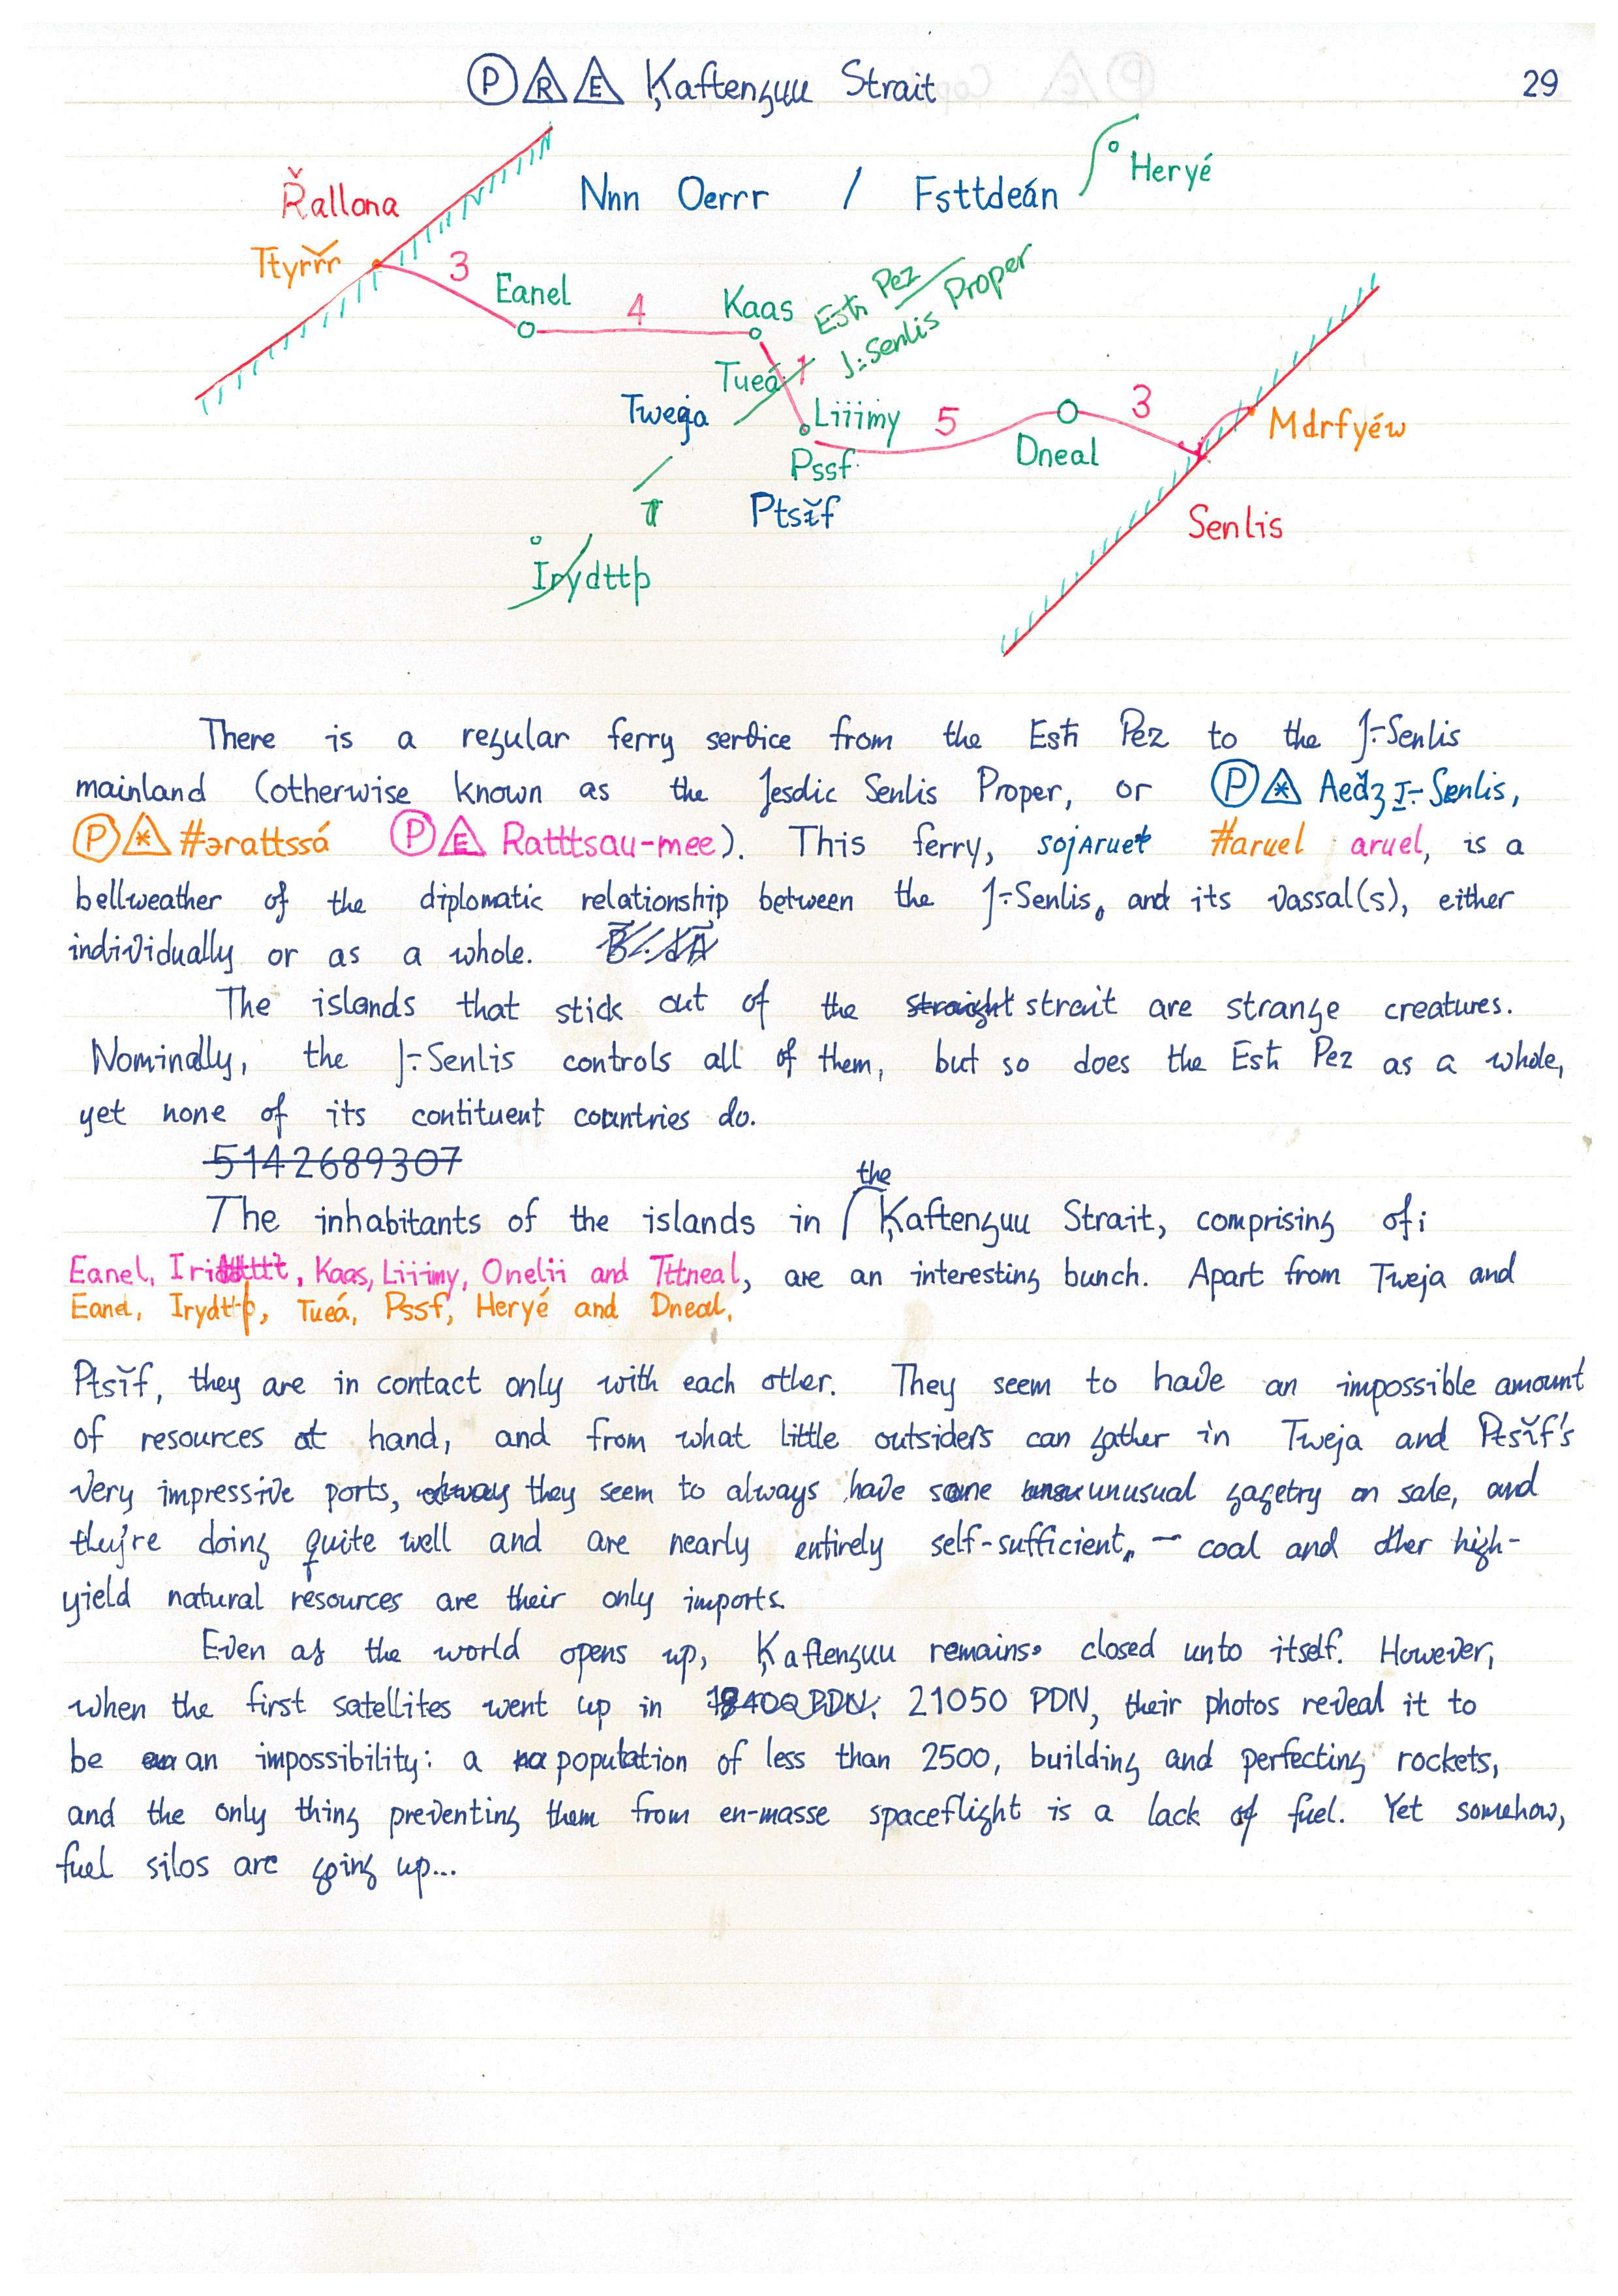 Ⓟ R E Ķaftenguu Strait
29
Heryé
Řallona
Nnn Oerrr / Fsttdeán
Ttyrřr
3
Eanel
4
Kaas
Esħ Pez
J÷Senlis Proper
Tueá
1
Tweja
Liiimy
5
3
Mdrfyéw
Dneal
Pssf
Ptsĭf
Senlis
Irydttþ
There is a regular ferry service from the Esħ Pez to the J÷Senlis
mainland (otherwise known as the Jesdic Senlis Proper, or Ⓟ * Aeđʒ I÷Senlis,
Ⓟ * #ərattssá Ⓟ E Ratttsau-mee). This ferry, sojAruet #aruel aruel, is a
bellweather of the diplomatic relationship between the J÷Senlis, and its vassal(s), either
individually or as a whole.
The islands that stick out of the straight strait are strange creatures.
Nominally, the J÷Senlis controls all of them, but so does the Esħ Pez as a whole,
yet none of its contituent countries do.
5142689307
the
The inhabitants of the islands in Ķaftenguu Strait, comprising of:
Eanel, Kaas, Liiimy, Onelii and Tttneal, are an interesting bunch. Apart from Tweja and
Eanel, Irydttþ, Tueá, Pssf, Heryé and Dneal,
Ptsĭf, they are in contact only with each other. They seem to have an impossible amount
of resources at hand, and from what little outsiders can gather in Tweja and Ptsĭf's
very impressive ports, they seem to always have some unusual gagetry on sale, and
they're doing quite well and are nearly entirely self-sufficient, - coal and other high-
yield natural resources are their only imports.
Even as the world opens up, Ķaftenguu remains closed unto itself. However,
when the first satellites went up in 21050 PDN, their photos reveal it to
be an impossibility: a population of less than 2500, building and perfecting rockets,
and the only thing preventing them from en-masse spaceflight is a lack of fuel. Yet somehow,
fuel silos are going up...